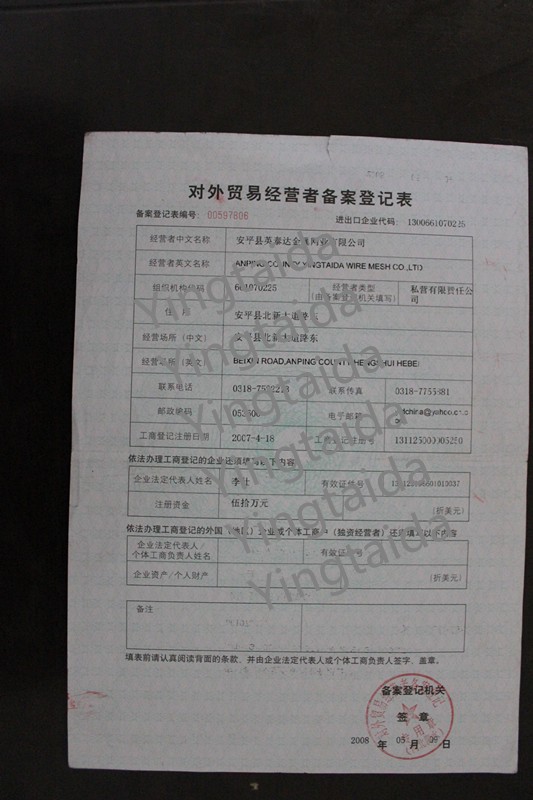 对外贸易经营者备案登记表
备案登记表编号: 00597806 进出口企业代码: 1300661070225
经营者中文名称 安平县英泰达金属网业有限公司
经营者英文名称 ANPING COUNTY YINGTAIDA WIRE MESH CO.,LTD
组织机构代码 661070225 经营者类型 (由备案登记机关填写) 私营有限责任公司
住 所 安平县北新大道路东
经营场所 (中文) 安平县北新大道路东
经营场所 (英文) BEIXIN ROAD,ANPING COUNTY HENGSHUI HEBEI
联系电话 联系传真
邮政编码 053600 电子邮箱
工商登记注册日期 2007-4-18 工商登记注册号
依法办理工商登记的企业还须填写以下内容
企业法定代表人姓名 有效证件号
注册资金 伍拾万元 (折美元)
依法办理工商登记的外国（地区）企业或个体工商户（独资经营者）还须填写以下内容
企业法定代表人/
个体工商负责人姓名 有效证件号
企业资产/个人财产 (折美元)
备注
填表前请认真阅读背面的条款，并由企业法定代表人或个体工商负责人签字、盖章。
备案登记机关
签 章
2008 年 05 月 日
Yingtaida
Yingtaida
Yingtaida
Yingtaida
Yingtaida